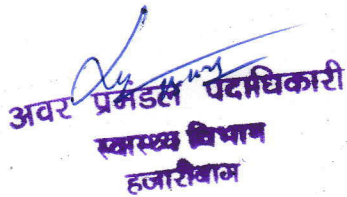 अवर प्रमंडल पदाधिकारी
स्वास्थ्य विभाग
हजारीबाग